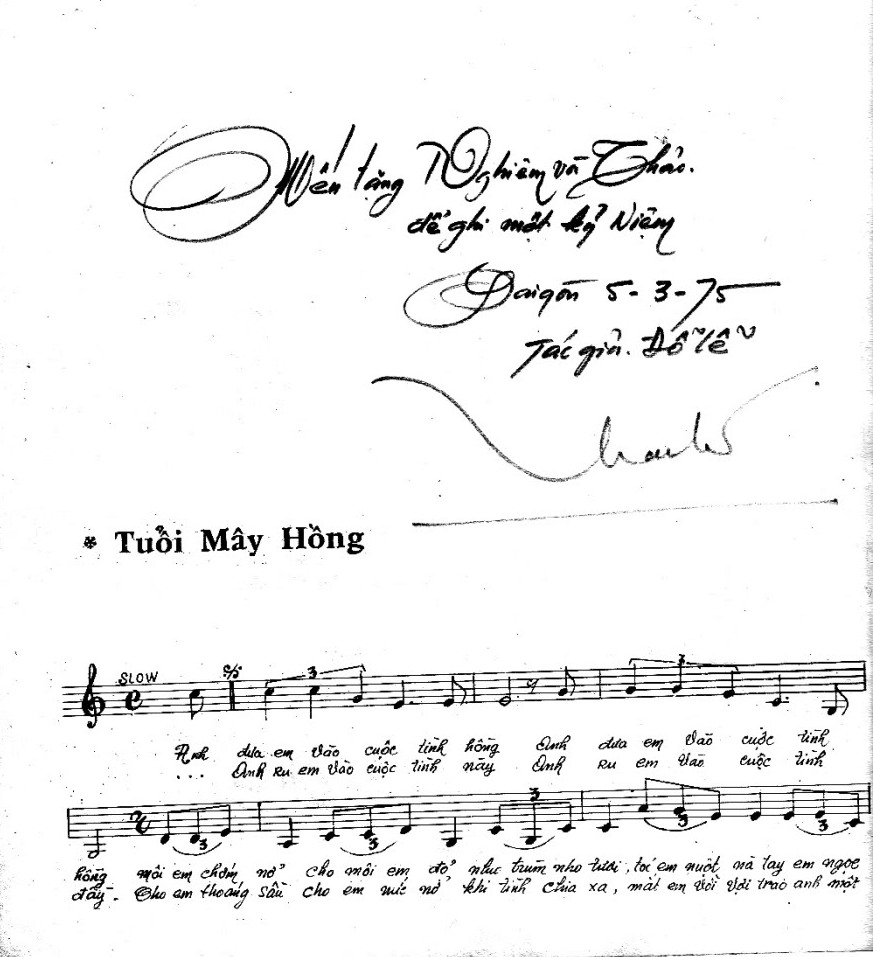 Mến tặng Nghiêm và Thảo.
để ghi một kỷ Niệm
Saigòn 5-3-75
Tác giả. Đỗ Lễ
* Tuổi Mây Hồng
SLOW
3
3
Anh đưa em vào cuộc tình hồng Anh đưa em vào cuộc tình
... Anh ru em vào cuộc tình này Anh ru em vào cuộc tình
3
3
3
3
3
hồng môi em chớm nở cho môi em đỏ như trùm nho tươi, tóc em mượt mà tay em ngọc
đầy. Cho em thoáng sầu cho em nức nở khi tình chia xa, mắt em vời vợi trao anh một